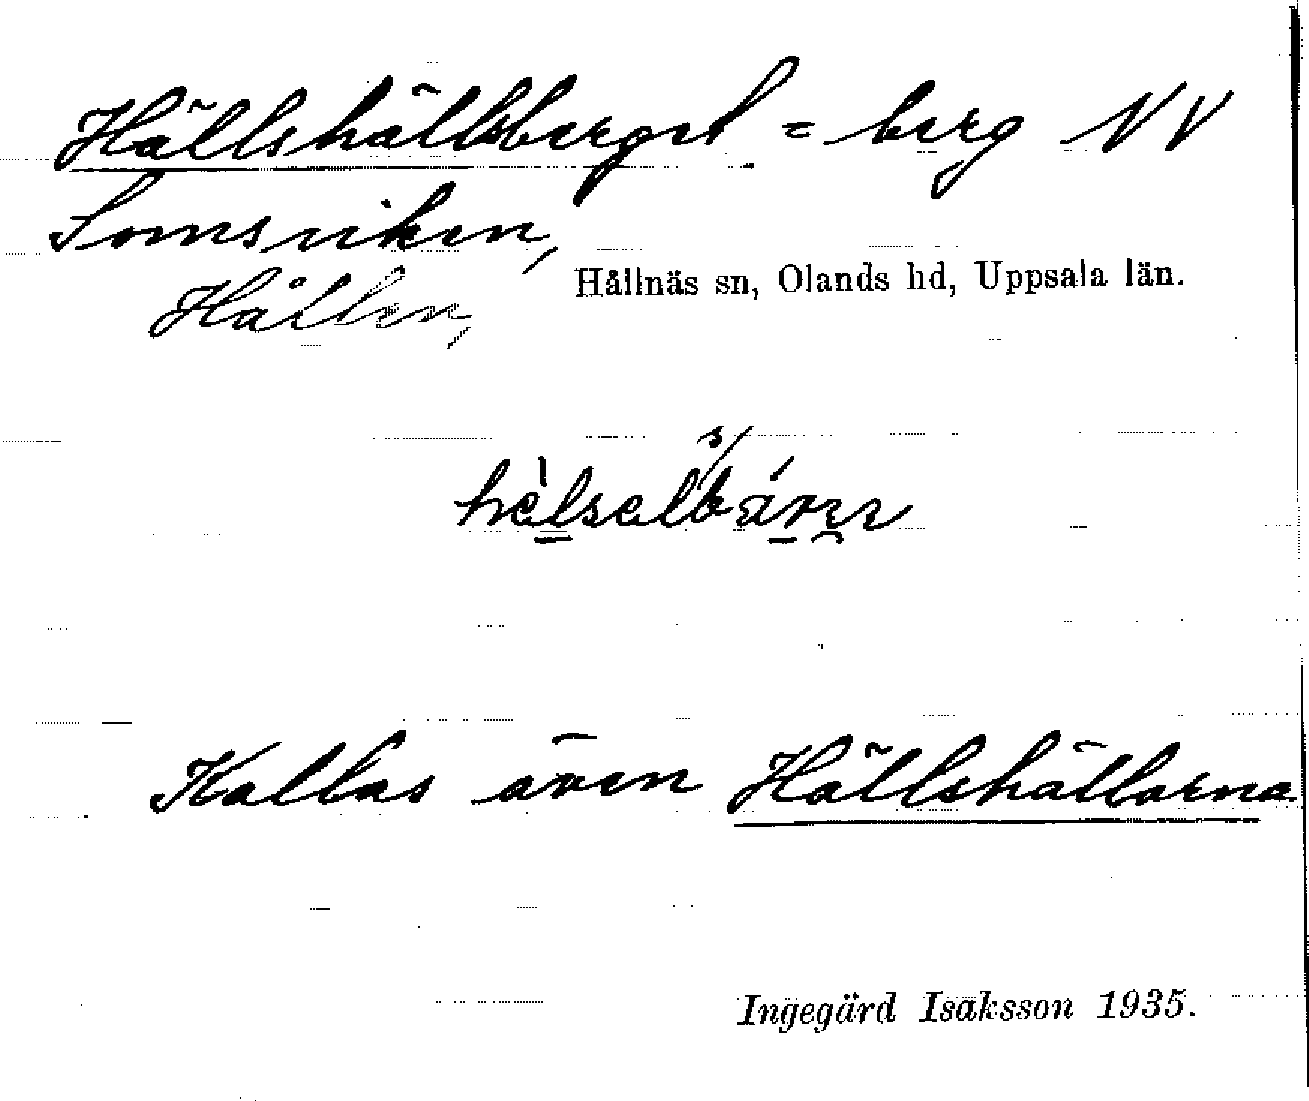 Hällshällsberget = berg NV
Somsviken,
Hållen,
Hållnäs sn, Olands hd, Uppsala län.
s/
Kallas även Hällshällarna
Ingegärd Isaksson 1935.